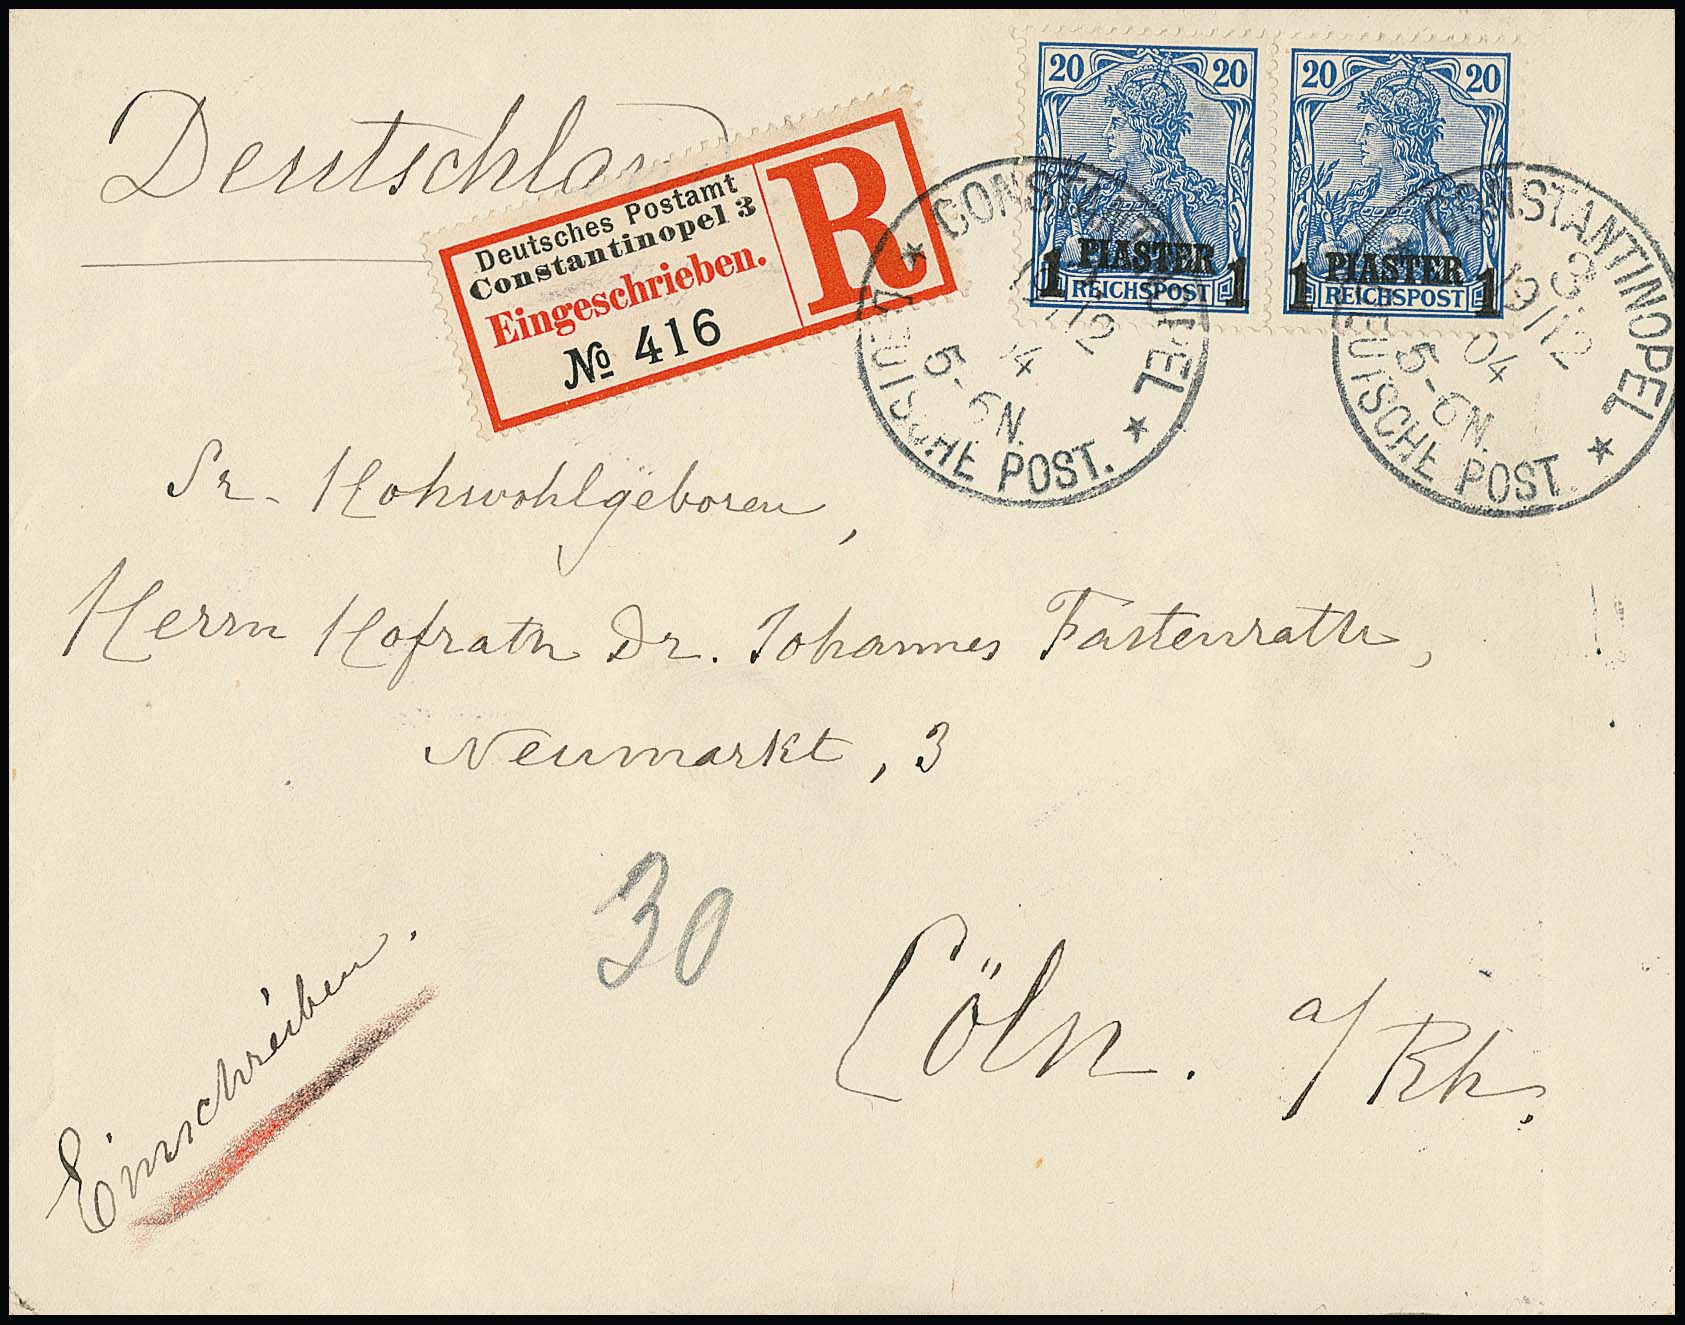 Deutschlan
Deutsches Postamt
Constantinopel 3
Eingeschrieben.
№ 416
R
20 20
1 PIASTER 1
REICHSPOST
20 20
1 PIASTER 1
REICHSPOST
★ CONSTANTINOPEL ★
19/12
5-6N.
DEUTSCHE POST.
★ CONSTANTINOPEL ★
3
19/12
04
5-6N.
DEUTSCHE POST.
Sr. Hohwohlgeboren,
Herrn Hofrath Dr. Johannes Fastenrath,
Neumarkt, 3
30
Cöln. a/Rh.
Einschreiben.